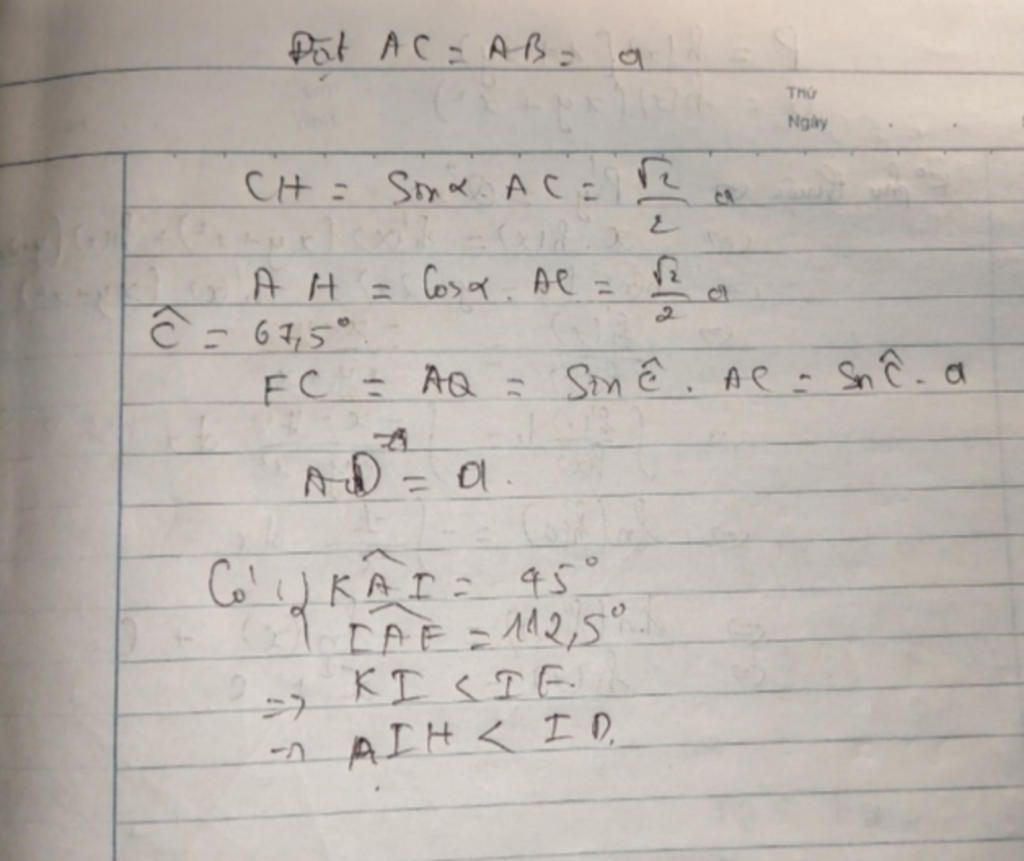 Đặt AC = AB = a
Thứ
Ngày
CH = Sinα. AC = √2/2 a
AH = Cosα. AC = √2/2 a
Ĉ = 67,5°
FC = AQ = Sin Ĉ. AC = Sn Ĉ. a
AD = a.
Có { KÂI = 45°
IÂF = 112,5°
=> KI < IF.
IH < ID.